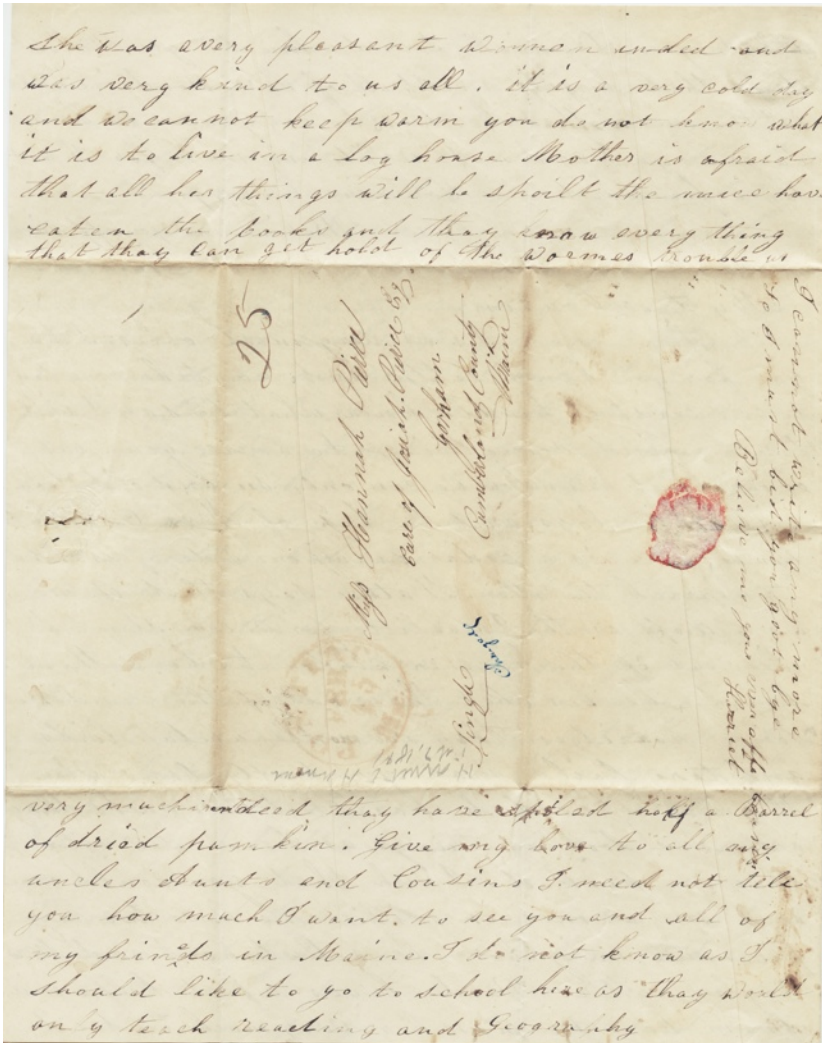 She was avery pleasant women inded and
was very kind to us all. it is a very cold day
and we cannot keep warm you do not kno what
it is to live in a log house Mother is afraid
that all her things will be spoilt the mice have
eaten the books and thay knaw every thing
that thay can get hold of the wormes trouble us
25
Miss Hannah Peirce
Care of Josiah Peirce Esq.
Gorham
Cumberland County
Maine
Single
I cannot write any more
so I must bid you good bye
Believe me your ever affe
Harriet
very much indeed thay have spiled half a Barrel
of dried pumkin. Give my love to all my
uncles Aunts and Cousins I need not tele
you how much I want to see you and all of
my frinds in Maine. I do not know as I
should like to go to school here as thay would
only teach reading and Geography